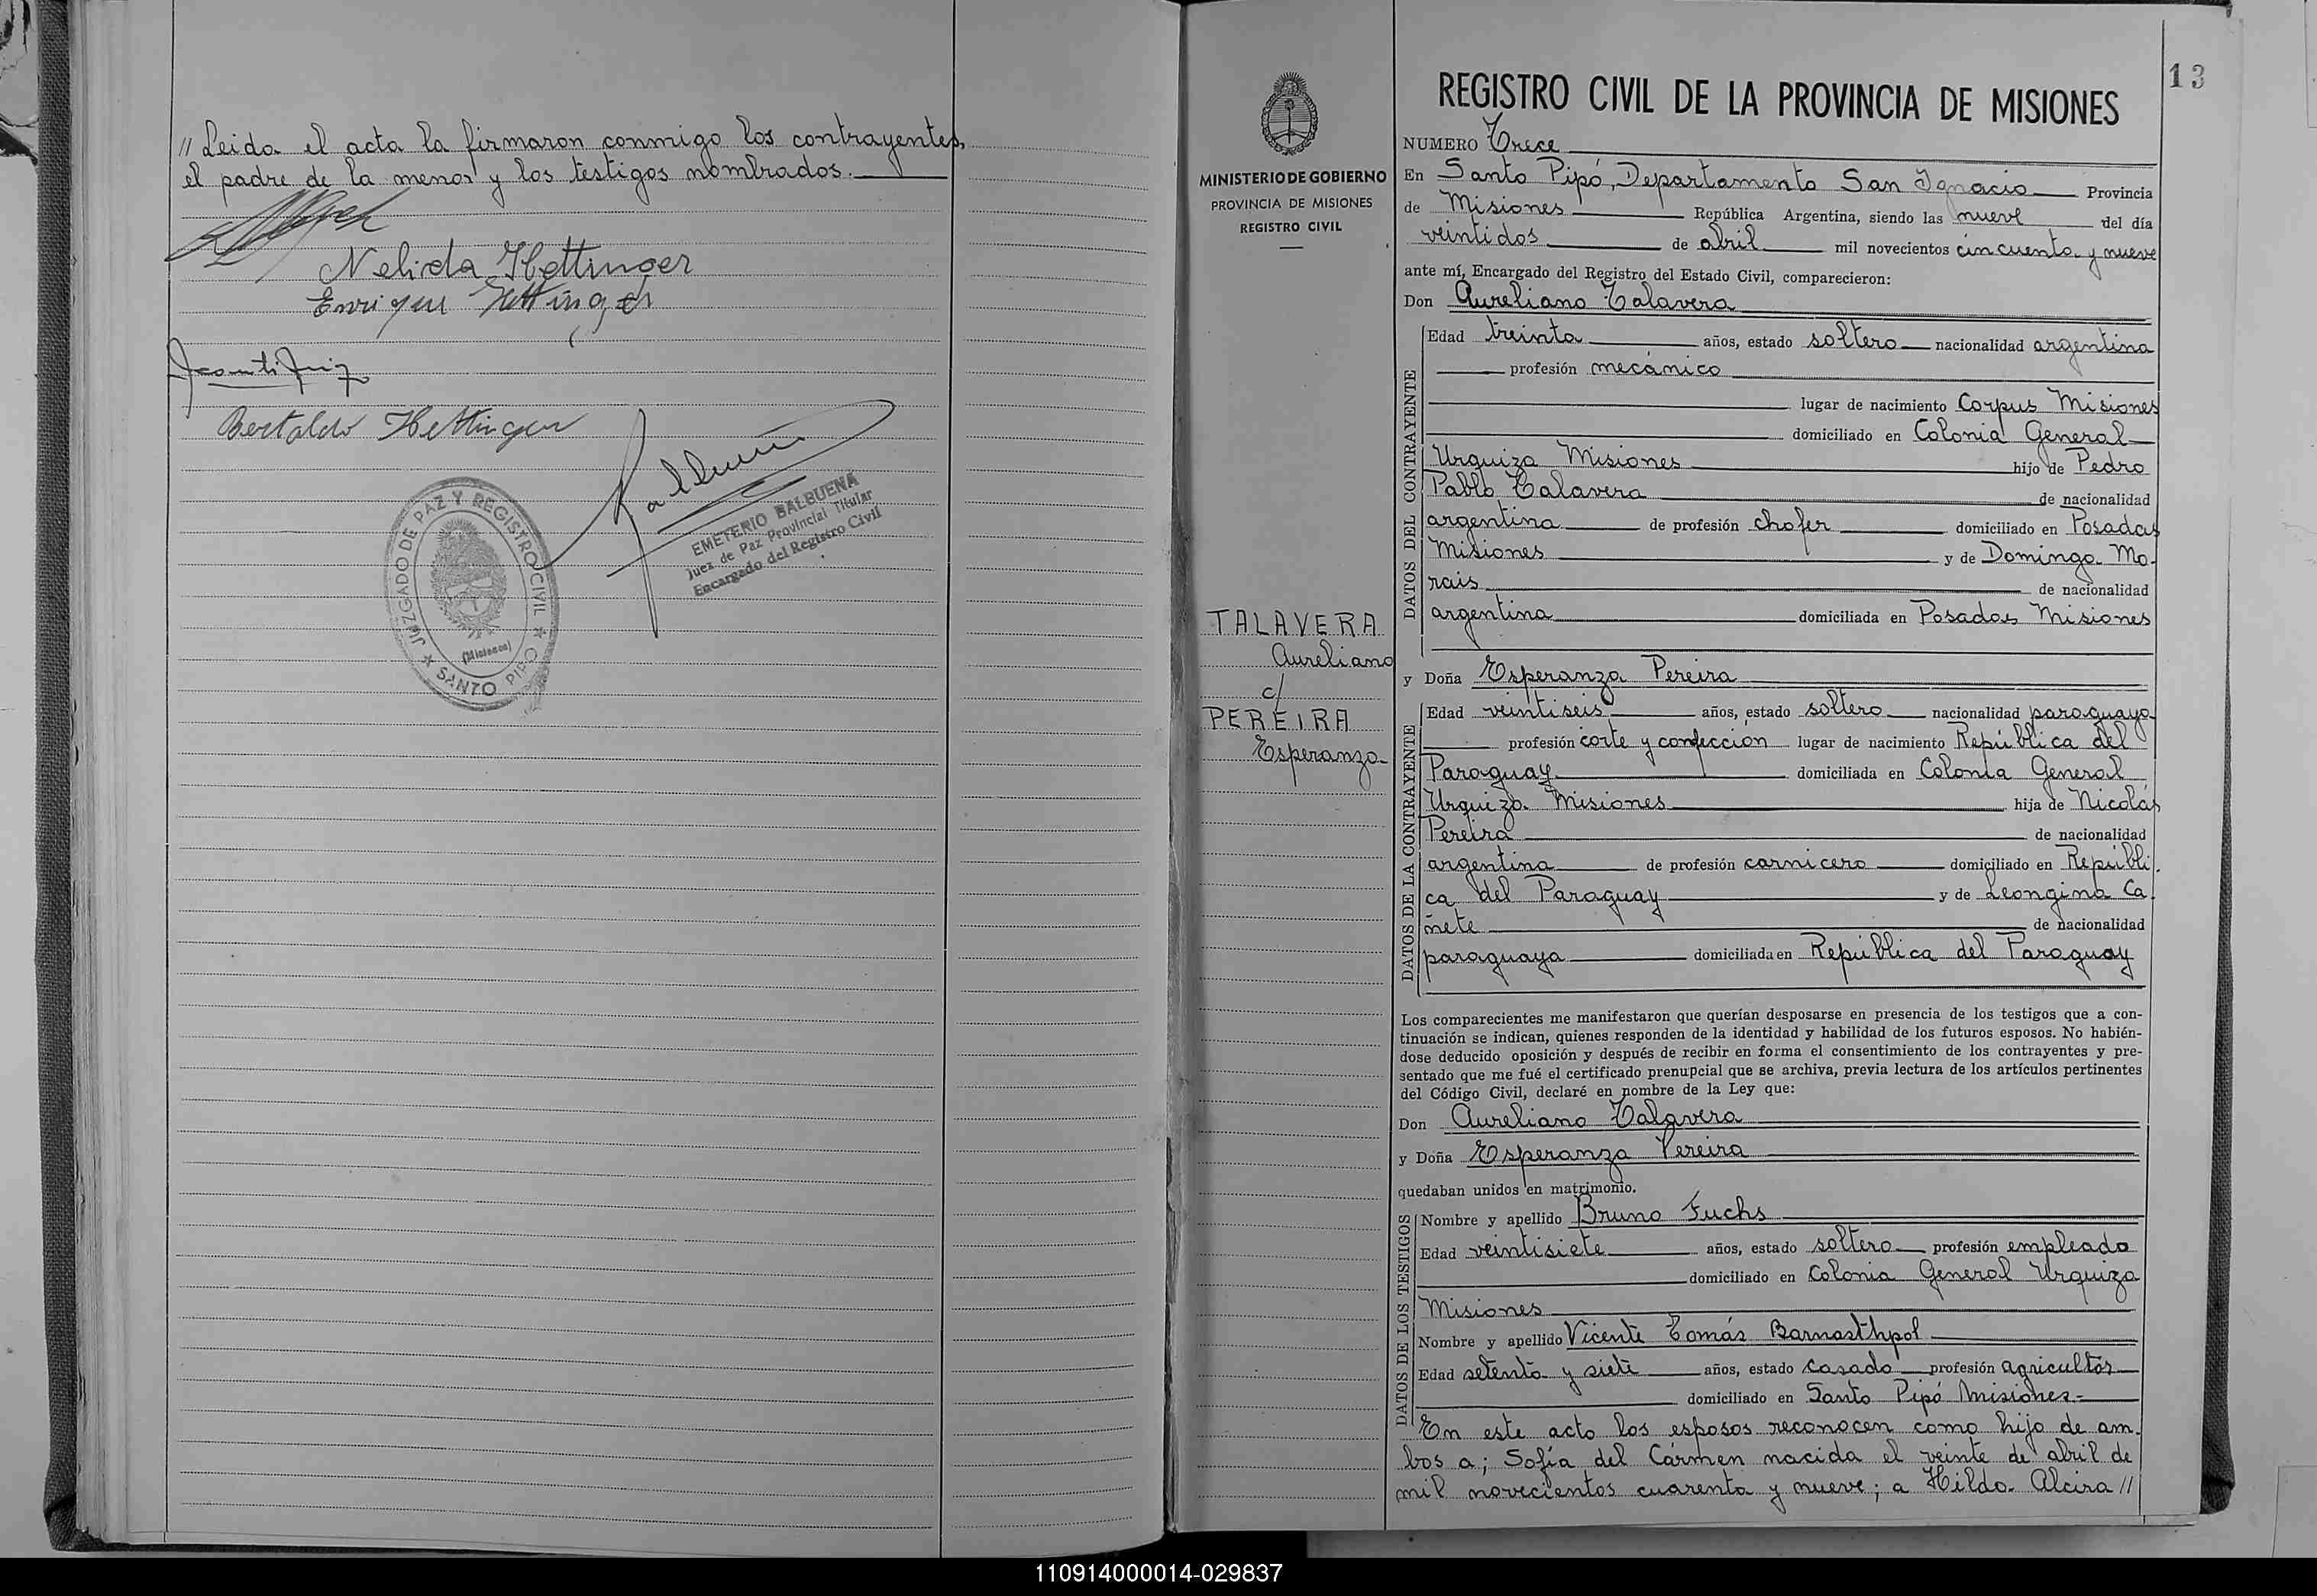 // Leida el acta la firmaron conmigo los contrayentes,
el padre de la menor y los testigos nombrados.
Nelida Hettinger
Enrique Hettinger
Bertoldo Hettinger
EMETERIO BALBUENA
Juez de Paz Provincial Titular
Encargado del Registro Civil
JUZGADO DE PAZ Y REGISTRO CIVIL
(Misiones)
SANTO PIPO
13
MINISTERIO DE GOBIERNO
PROVINCIA DE MISIONES
REGISTRO CIVIL
TALAVERA
Aureliano
c/
PEREIRA
Esperanza
REGISTRO CIVIL DE LA PROVINCIA DE MISIONES
NUMERO Trece
En Santo Pipó, Departamento San Ignacio Provincia
de Misiones República Argentina, siendo las nueve del día
veintidos de abril mil novecientos cincuenta y nueve
ante mí, Encargado del Registro del Estado Civil, comparecieron:
Don Aureliano Talavera
DATOS DEL CONTRAYENTE
Edad treinta años, estado soltero nacionalidad argentina
profesión mecánico
lugar de nacimiento Corpus Misiones
domiciliado en Colonia General
Urquiza Misiones hijo de Pedro
Pablo Talavera de nacionalidad
argentina de profesión chofer domiciliado en Posadas
Misiones y de Dominga Mo-
rais de nacionalidad
argentina domiciliada en Posadas Misiones
y Doña Esperanza Pereira
DATOS DE LA CONTRAYENTE
Edad veintiseis años, estado soltero nacionalidad paraguaya
profesión corte y confección lugar de nacimiento República del
Paraguay domiciliada en Colonia General
Urquiza Misiones hija de Nicolás
Pereira de nacionalidad
argentina de profesión carnicero domiciliado en Repúbli-
ca del Paraguay y de Leongina Ca
ñete de nacionalidad
paraguaya domiciliada en República del Paraguay
Los comparecientes me manifestaron que querían desposarse en presencia de los testigos que a con-
tinuación se indican, quienes responden de la identidad y habilidad de los futuros esposos. No habién-
dose deducido oposición y después de recibir en forma el consentimiento de los contrayentes y pre-
sentado que me fué el certificado prenupcial que se archiva, previa lectura de los artículos pertinentes
del Código Civil, declaré en nombre de la Ley que:
Don Aureliano Talavera
y Doña Esperanza Pereira
quedaban unidos en matrimonio.
DATOS DE LOS TESTIGOS
Nombre y apellido Bruno Fuchs
Edad veintisiete años, estado soltero profesión empleado
domiciliado en Colonia General Urquiza
Misiones
Nombre y apellido Vicente Tomás Barnasthpol
Edad setenta y siete años, estado casado profesión agricultor
domiciliado en Santo Pipó Misiones-
En este acto los esposos reconocen como hijo de am-
bos a; Sofía del Cármen nacida el veinte de abril de
mil novecientos cuarenta y nueve; a Hilda Alcira //
110914000014-029837